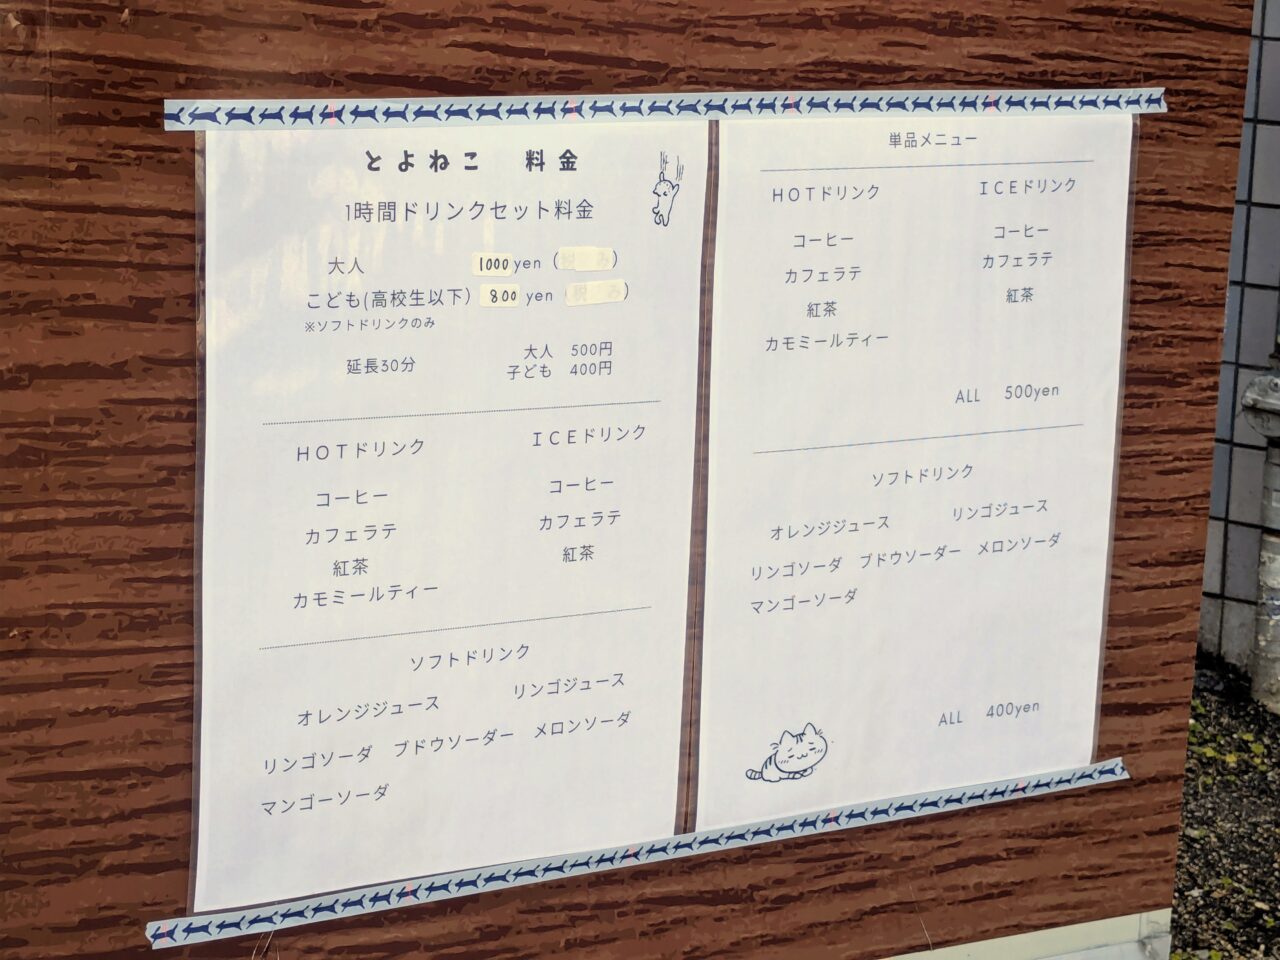 とよねこ 料金
1時間ドリンクセット料金
大人 1000yen (税 み)
こども(高校生以下) 800 yen (税 み)
※ソフトドリンクのみ
延長30分
大人 500円
子ども 400円
HOTドリンク ICEドリンク
コーヒー コーヒー
カフェラテ カフェラテ
紅茶 紅茶
カモミールティー
ソフトドリンク
オレンジジュース リンゴジュース
リンゴソーダ ブドウソーダー メロンソーダ
マンゴーソーダ
単品メニュー
HOTドリンク ICEドリンク
コーヒー コーヒー
カフェラテ カフェラテ
紅茶 紅茶
カモミールティー
ALL 500yen
ソフトドリンク
オレンジジュース リンゴジュース
リンゴソーダ ブドウソーダー メロンソーダ
マンゴーソーダ
ALL 400yen